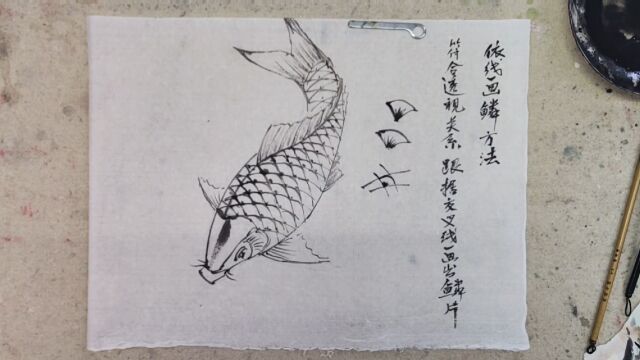 依线画鳞方法
符合透视关系 跟据交叉线画出鳞片